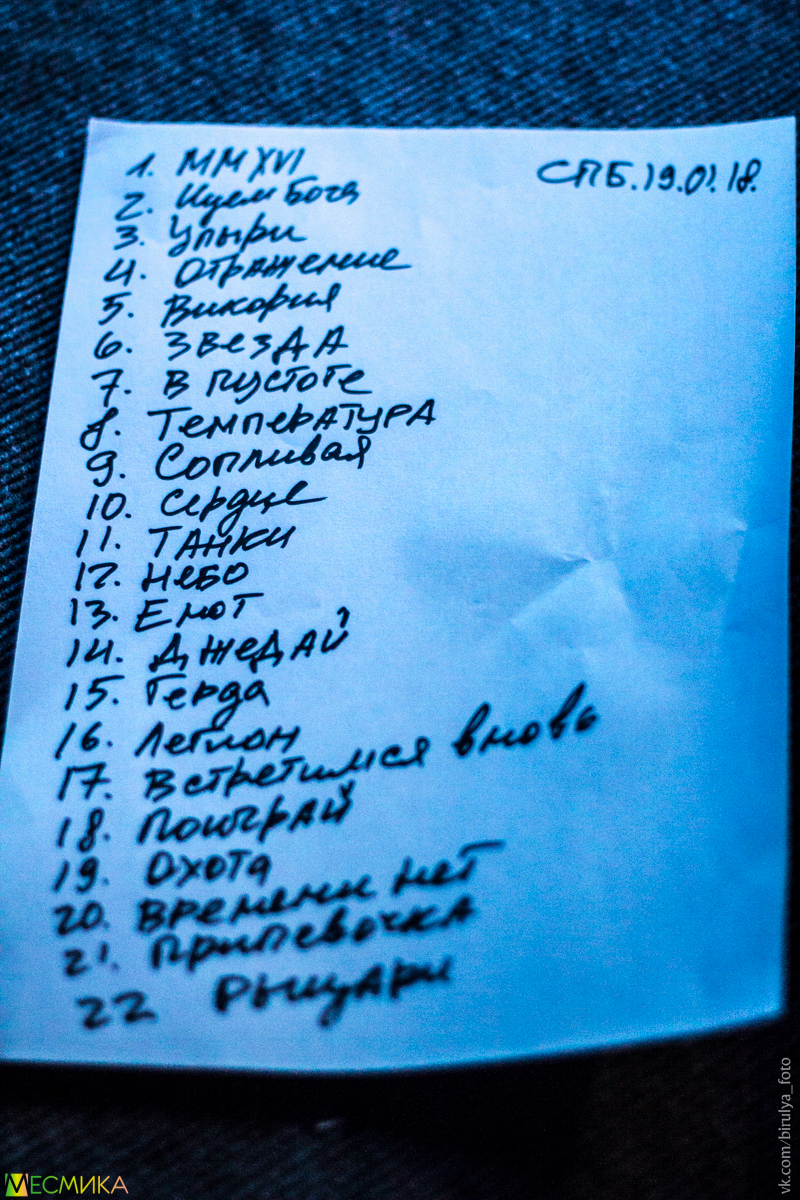 СПБ.19.01.18.
1. MMXVI
2. Ищем Бога
3. Упыри
4. Отражение
5. Викория
6. Звезда
7. В пустоте
8. Температура
9. Сопливая
10. Сердце
11. Танки
12. Небо
13. Енот
14. Джедай
15. Герда
16. Легион
17. Встретимся вновь
18. Поиграй
19. Охота
20. Времени нет
21. Припевочка
22 Рыцари
МЕСМИКА
vk.com/birulya_foto